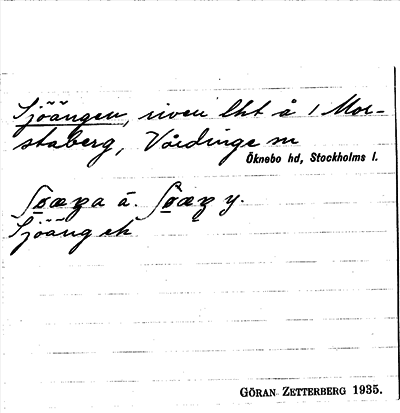 Sjöängen, riven lht å 1 Mor-
staberg, Vårdinge sn
Öknebo hd, Stockholms l.
a ä. y.
Sjöäng ek
GÖRAN ZETTERBERG 1935.